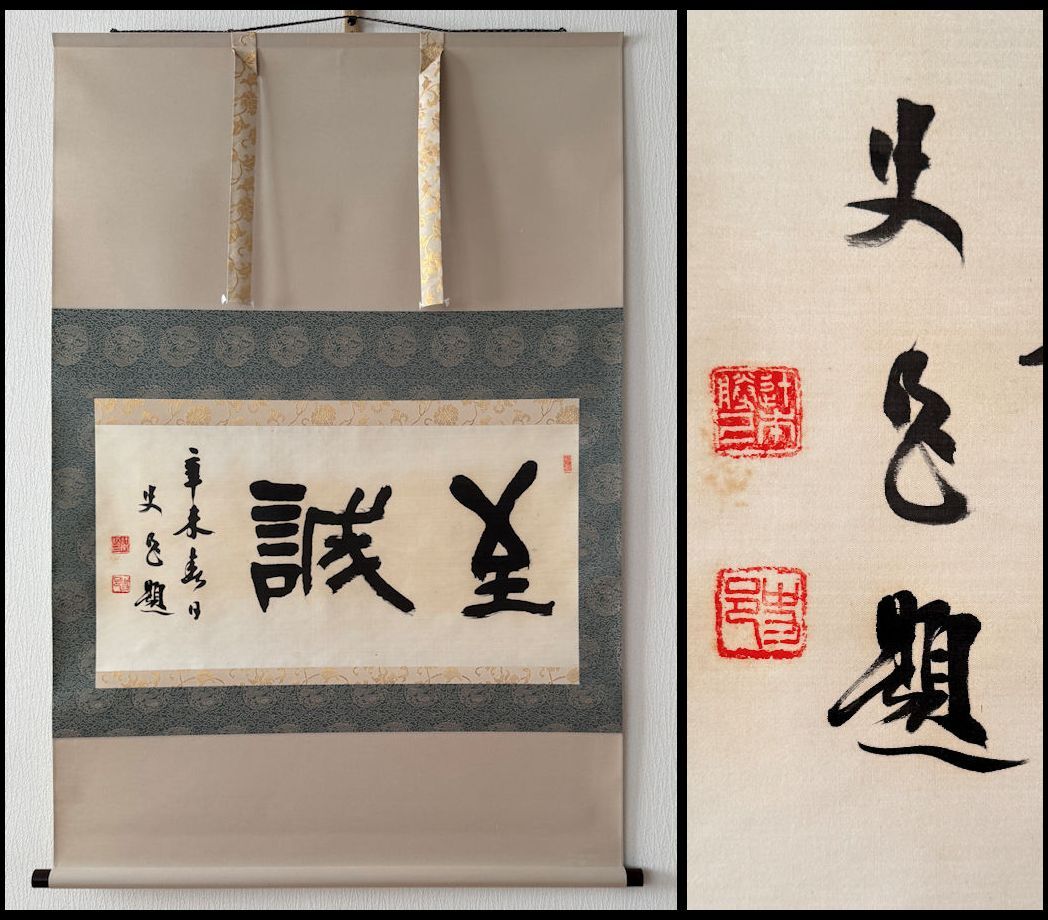 至誠
辛未春日
史邑題
史邑題